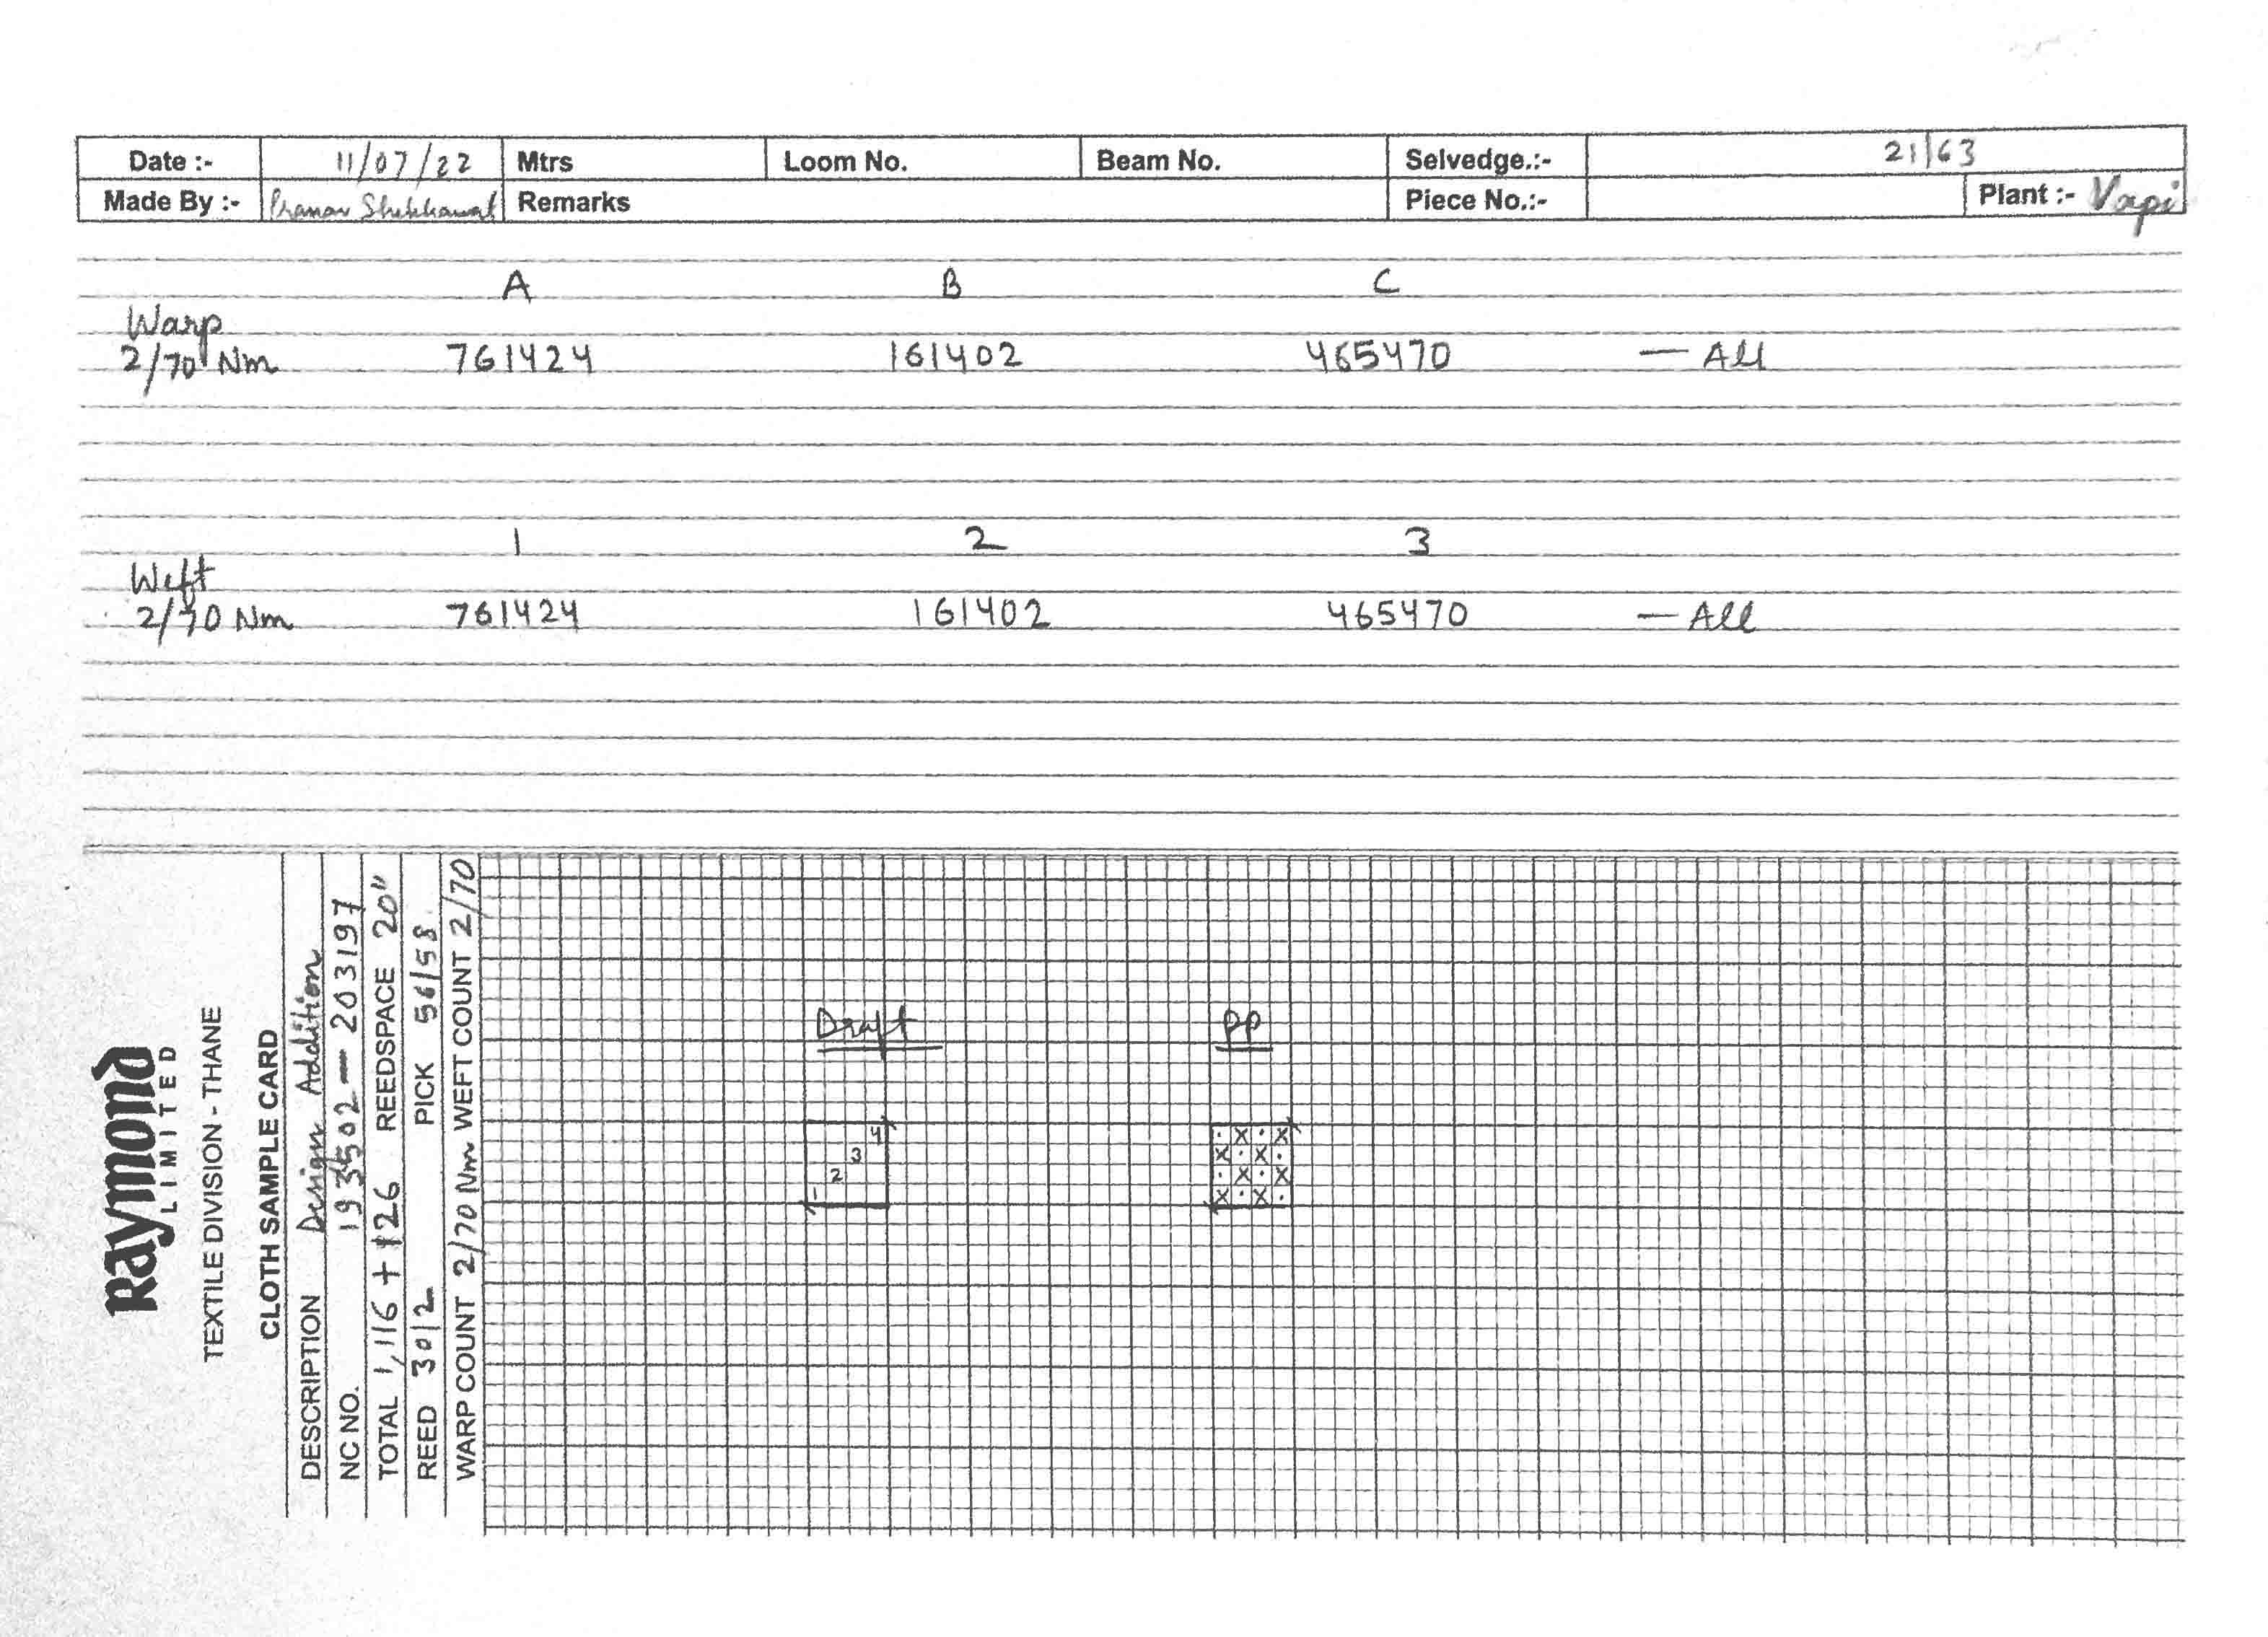 Date :- 11/07/22 Mtrs Loom No. Beam No. Selvedge.:- 21/63
Made By :- Pranav Shekhawat Remarks Piece No.:- Plant :- Vapi
A B C
Warp
2/70 Nm 761424 161402 465470 — All
1 2 3
Weft
2/70 Nm 761424 161402 465470 — All
Raymond
LIMITED
TEXTILE DIVISION - THANE
CLOTH SAMPLE CARD
DESCRIPTION Design Addition
NC NO. 193502 — 203197
TOTAL 1,116 + 126 REEDSPACE 20"
REED 30/2 PICK 56/58
WARP COUNT 2/70 Nm WEFT COUNT 2/70
Draft PP
4 . X . X
3 X . X .
2 . X . X
1 X . X .